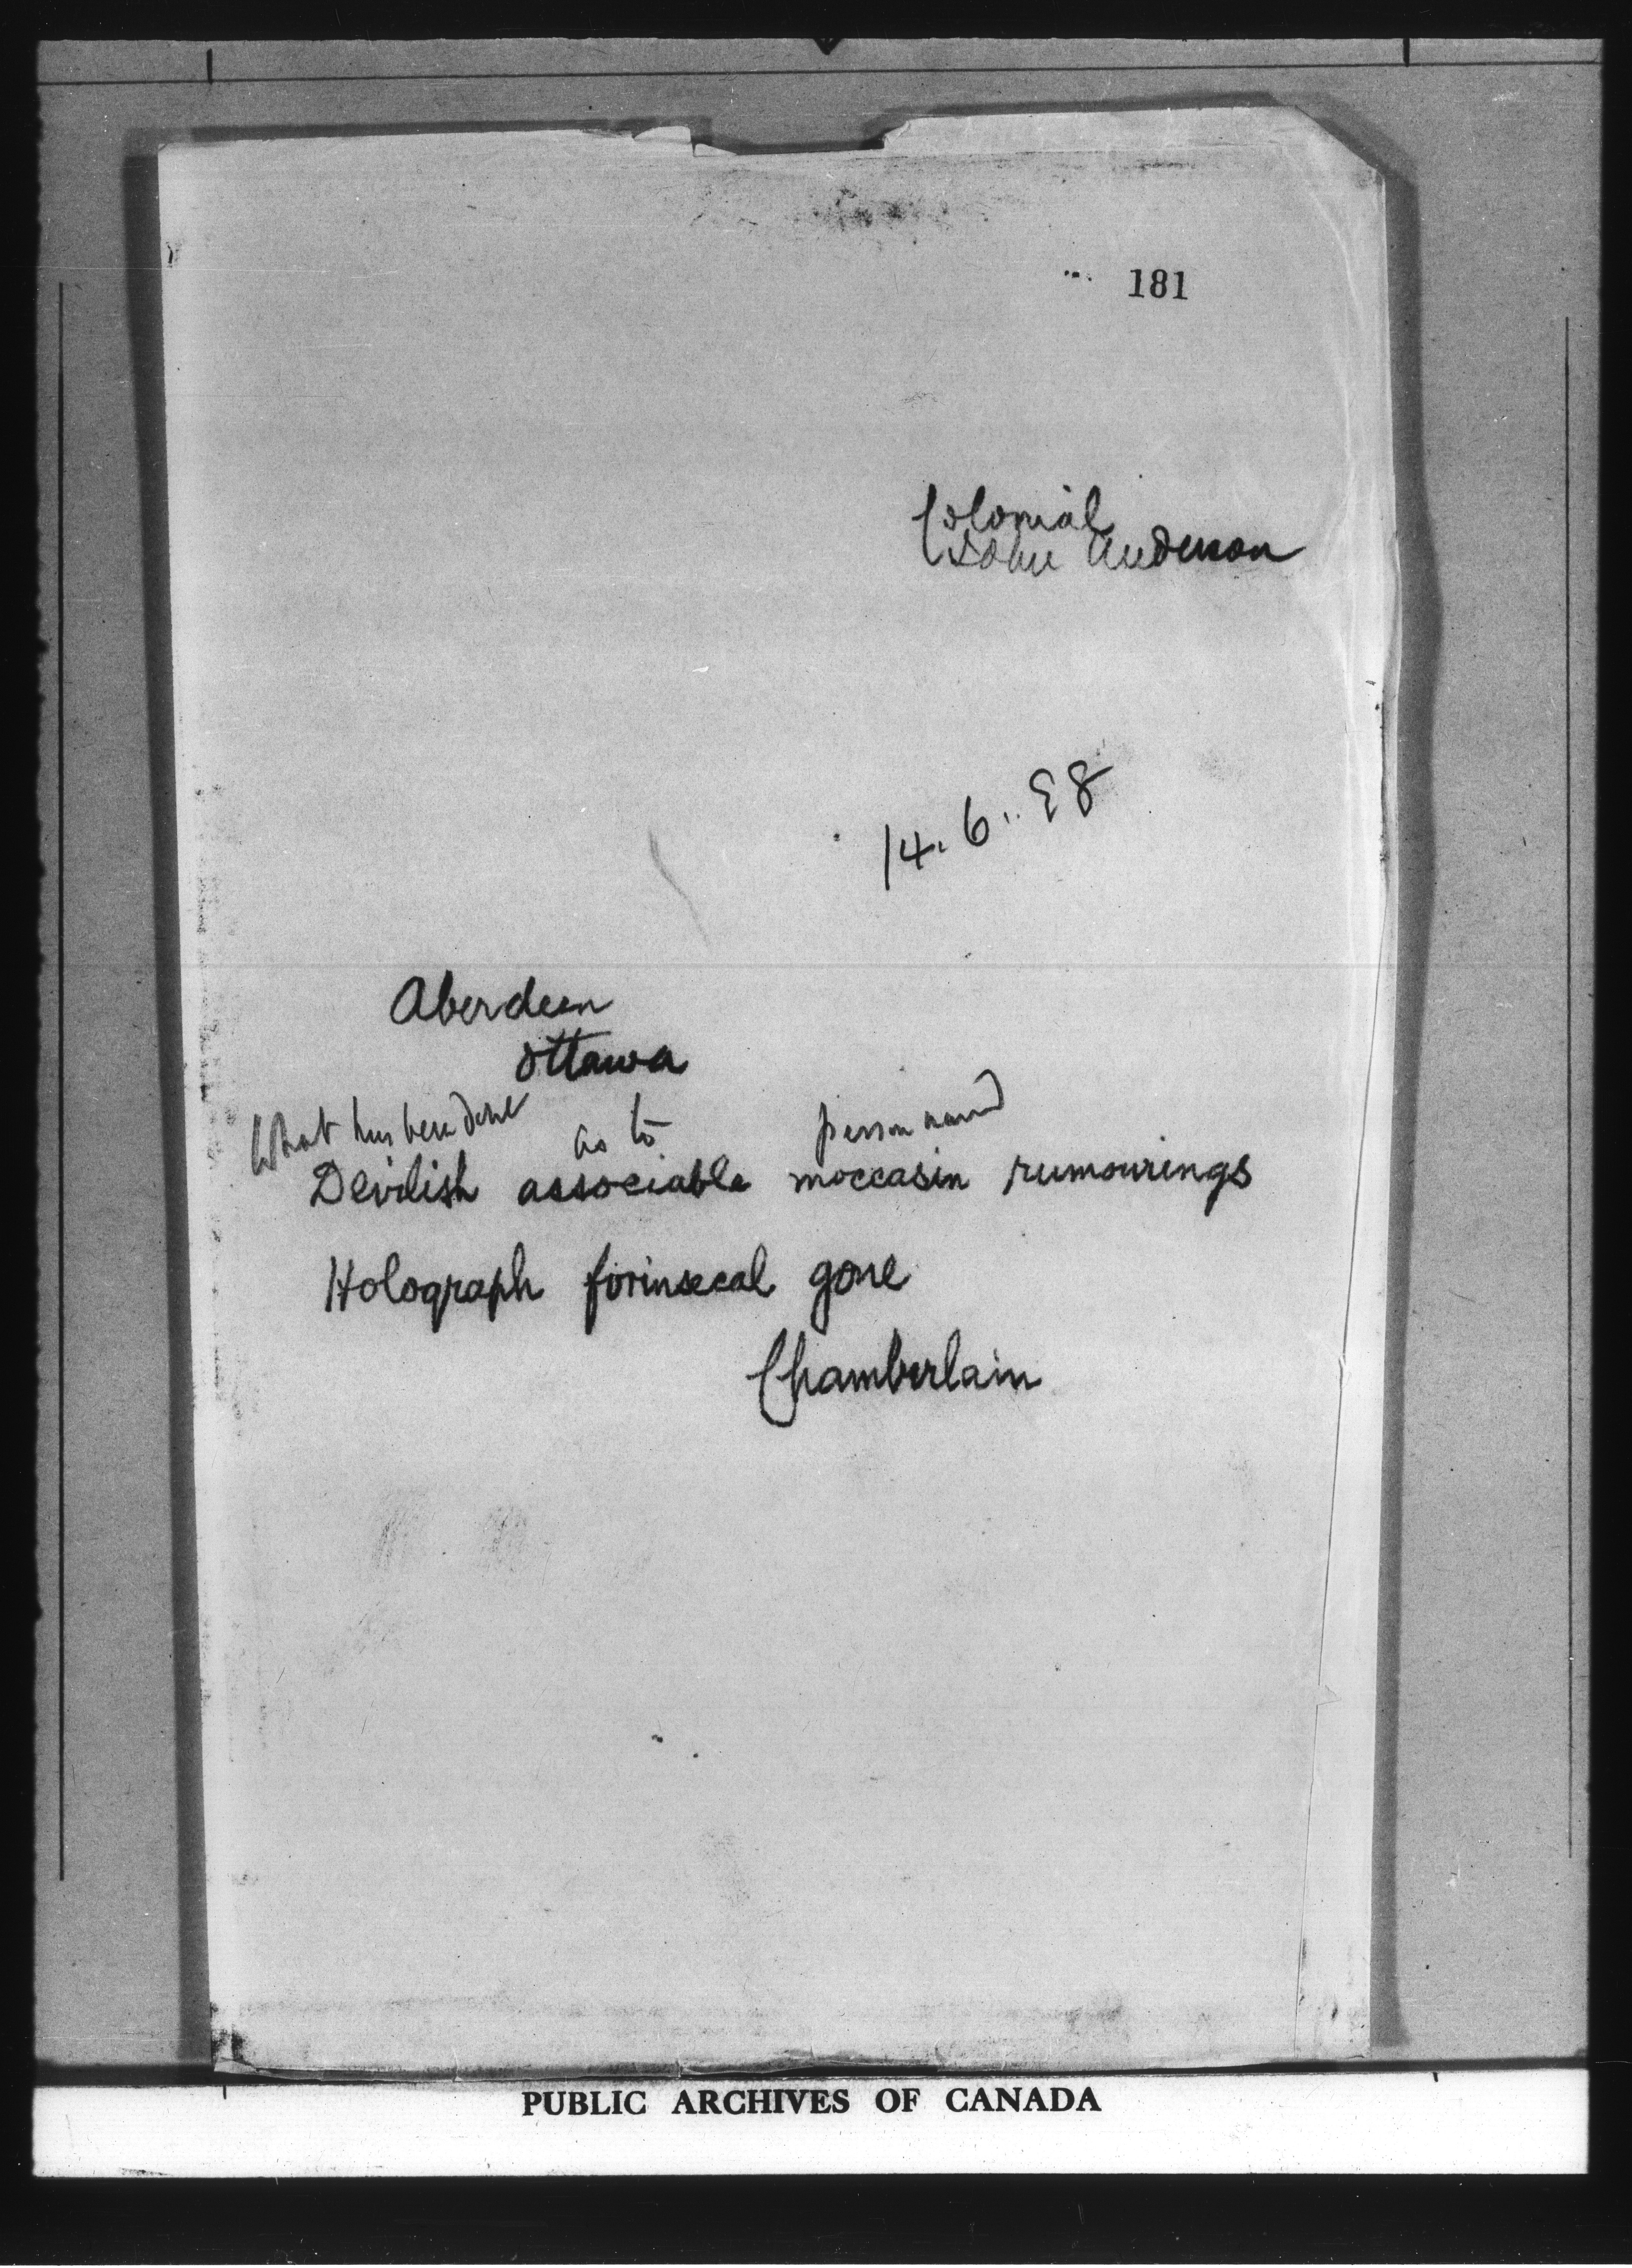 181
Colonial
John Anderson
14.6.98
Aberdeen
Ottawa
What has been done as to person named
Devilish associable moccasin rumourings
Holograph forinsecal gone
Chamberlain
PUBLIC ARCHIVES OF CANADA